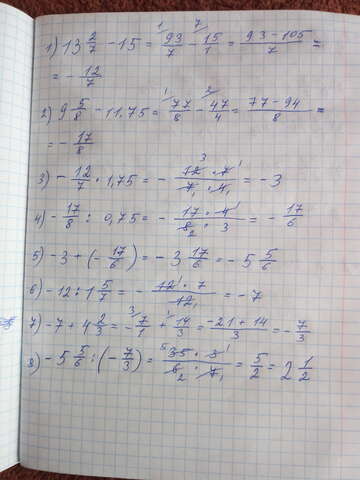 1) 13 2/7 - 15 = 93/7 - 15/1 = (93 - 105)/7 =
= - 12/7
2) 9 5/8 - 11,75 = 77/8 - 47/4 = (77 - 94)/8 =
= - 17/8
3) - 12/7 · 1,75 = - (12 · 7)/(7 · 4) = - 3
4) - 17/8 : 0,75 = - (17 · 4)/(8 · 3) = - 17/6
5) -3 + (- 17/6) = - 3 17/6 = - 5 5/6
6) -12 : 1 5/7 = - (12 · 7)/12 = - 7
7) -7 + 4 2/3 = - 7/1 + 14/3 = (-21 + 14)/3 = - 7/3
8) -5 5/6 : (- 7/3) = (35 · 3)/(6 · 7) = 5/2 = 2 1/2